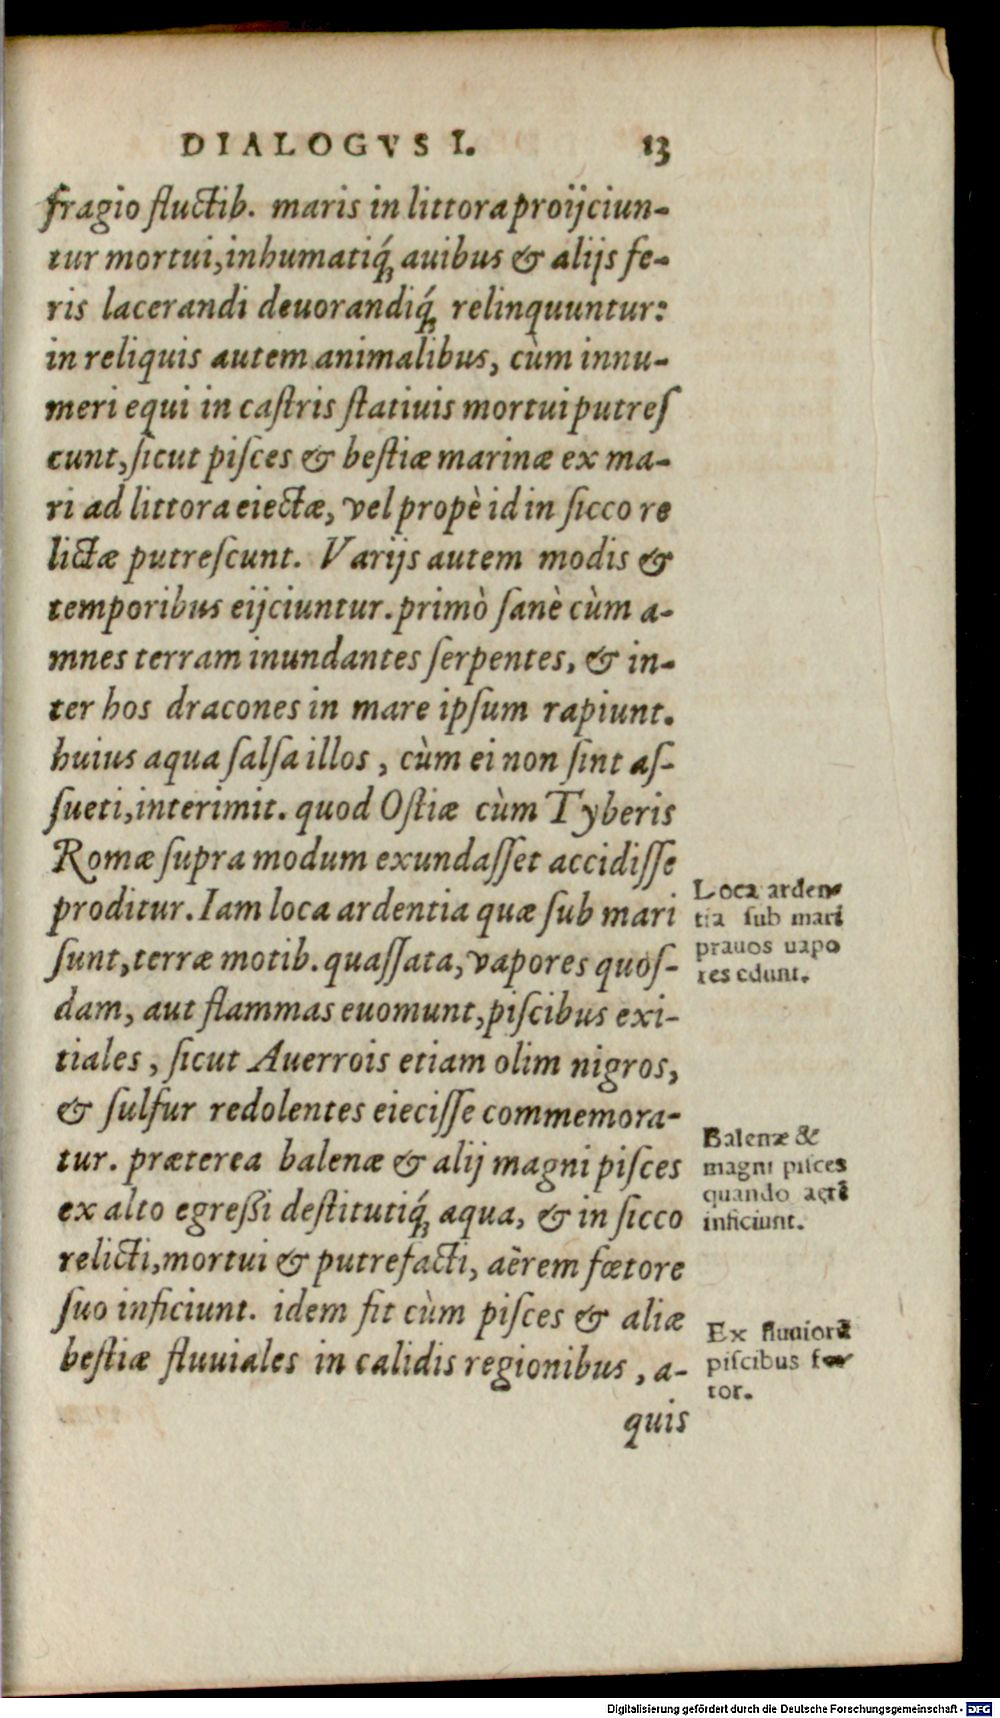 DIALOGVS I. 13
fragio fluctib. maris in littora proijciun-
tur mortui, inhumatiq́; auibus & alijs fe-
ris lacerandi deuorandiq́; relinquuntur:
in reliquis autem animalibus, cùm innu-
meri equi in caſtris ſtatiuis mortui putreſ
cunt, ſicut piſces & beſtiæ marinæ ex ma-
ri ad littora eiectæ, vel propè id in ſicco re
lictæ putreſcunt. Varijs autem modis &
temporibus eijciuntur. primò ſanè cùm a-
mnes terram inundantes ſerpentes, & in-
ter hos dracones in mare ipſum rapiunt.
huius aqua ſalſa illos, cùm ei non ſint aſ-
ſueti, interimit. quod Oſtiæ cùm Tyberis
Romæ ſupra modum exundaſſet accidiſſe
proditur. Iam loca ardentia quæ ſub mari
ſunt, terræ motib. quaſſata, vapores quoſ-
dam, aut flammas euomunt, piſcibus exi-
tiales, ſicut Auerrois etiam olim nigros,
& ſulfur redolentes eieciſſe commemora-
tur. præterea balenæ & alij magni piſces
ex alto egreßi deſtitutiq́; aqua, & in ſicco
relicti, mortui & putrefacti, aërem fœtore
ſuo inficiunt. idem fit cùm piſces & aliæ
beſtiæ fluuiales in calidis regionibus, a-
quis
Loca arden-
tia ſub mari
prauos uapo
res edunt.
Balenæ &
magni piſces
quando aerẽ
inficiunt.
Ex fluuiorũ
piſcibus fœ-
tor.
Digitalisierung gefördert durch die Deutsche Forschungsgemeinschaft - DFG